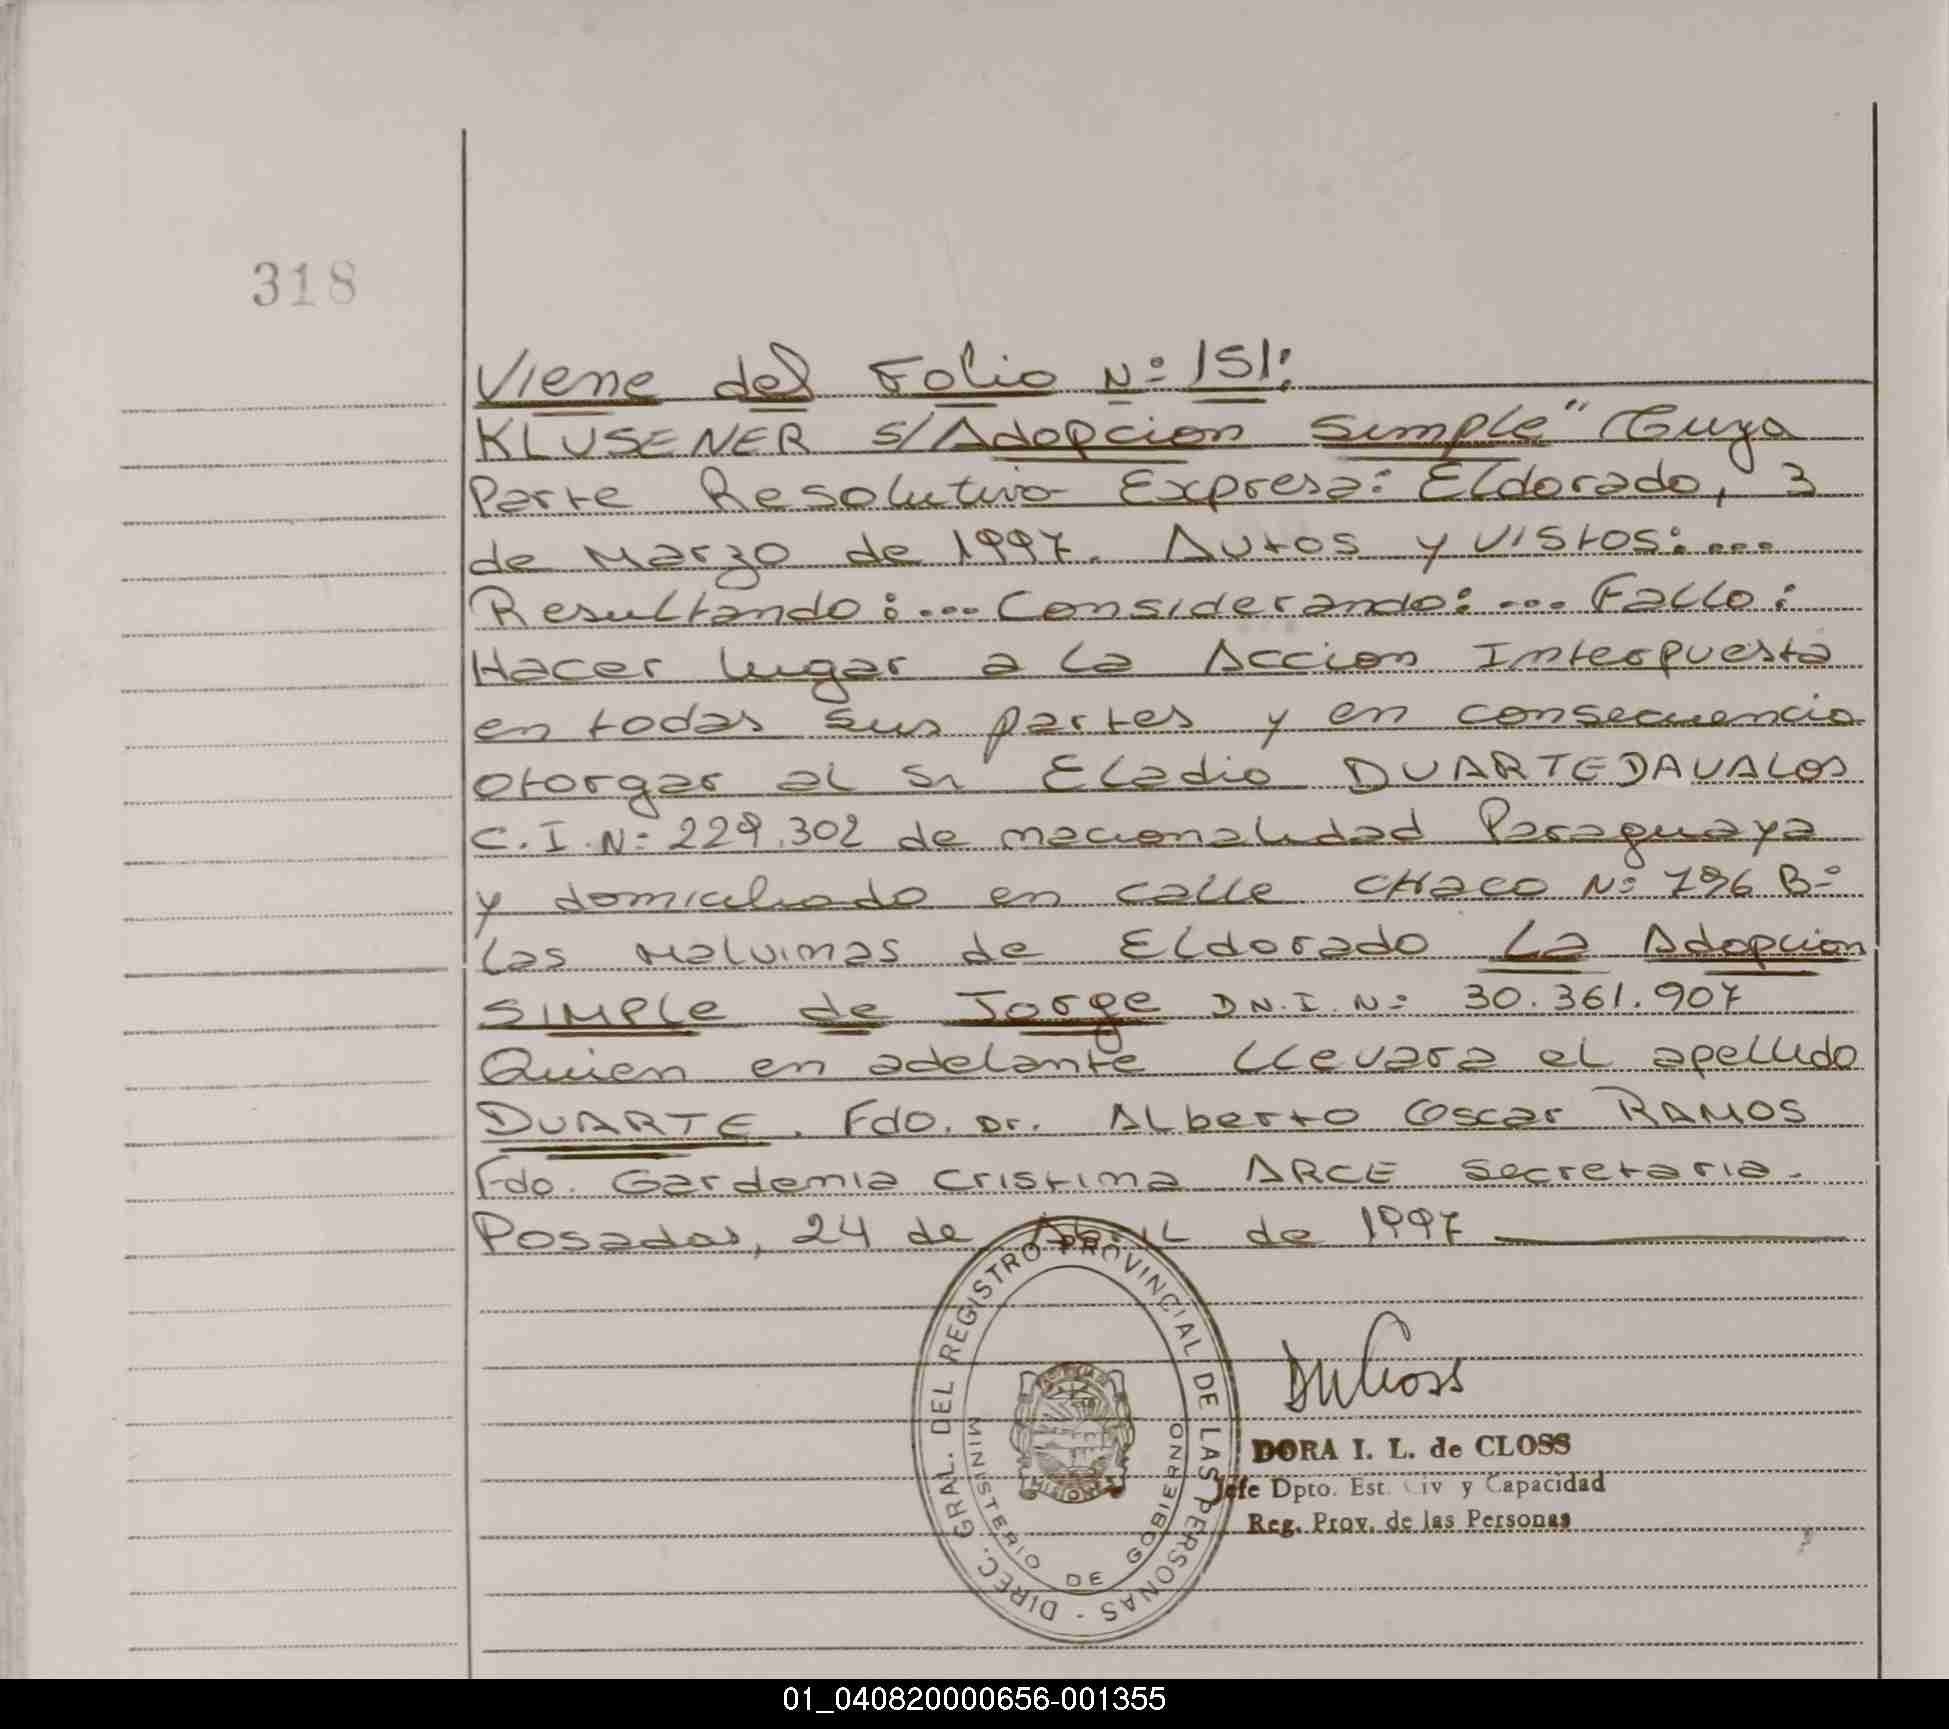 318
Viene del Folio Nº 151:
KLUSENER s/Adopcion Simple" Cuya
Parte Resolutiva Expresa: Eldorado, 3
de Marzo de 1997. Autos y vistos: ...
Resultando: ... Considerando: ... Fallo:
Hacer lugar a la Accion Interpuesta
en todas sus partes y en consecuencia
otorgar al Sr Eladio DUARTE DAVALOS
C.I.Nº 229.302 de nacionalidad Paraguaya
y domiciliado en calle CHaco Nº 796 Bº
Las Malvinas de Eldorado La Adopcion
SIMPLE de Jorge DN.I. Nº 30.361.907
Quien en adelante llevara el apellido
DUARTE. Fdo. Dr. Alberto Oscar RAMOS
Fdo. Gardenia Cristina ARCE Secretaria.
Posadas, 24 de Abril de 1997
DIREC. GRAL. DEL REGISTRO PROVINCIAL DE LAS PERSONAS -
MINISTERIO DE GOBIERNO
MISIONES
DORA I. L. de CLOSS
Jefe Dpto. Est. Civ y Capacidad
Reg. Prov. de las Personas
01_040820000656-001355